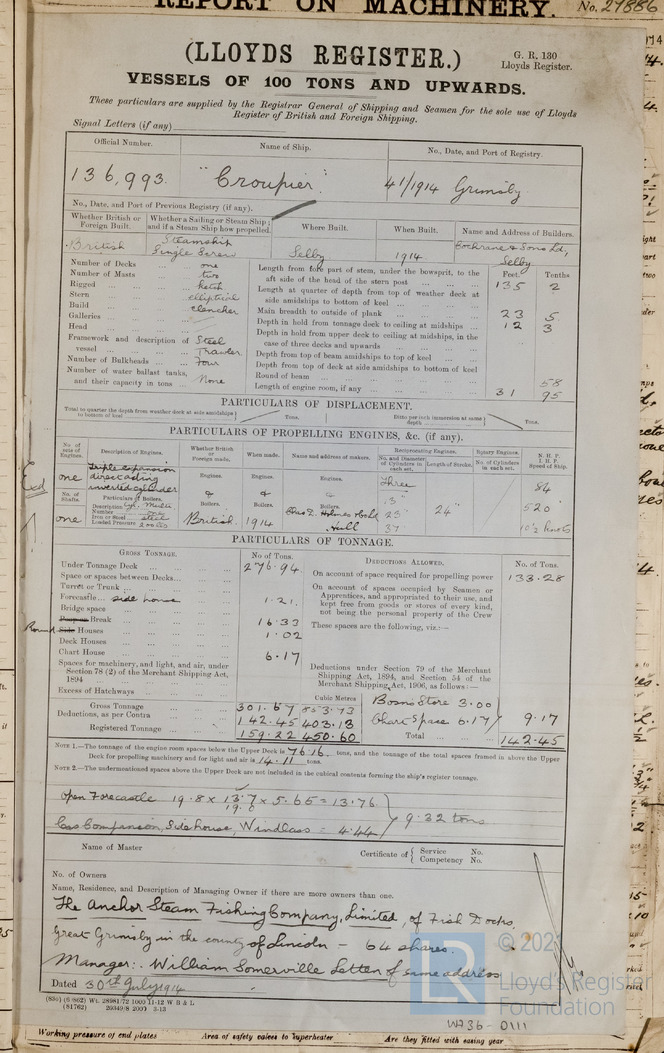 REPORT ON MACHINERY. No. 27886
(LLOYDS REGISTER.)
G. R. 130
Lloyds Register.
VESSELS OF 100 TONS AND UPWARDS.
These particulars are supplied by the Registrar General of Shipping and Seamen for the sole use of Lloyds
Register of British and Foreign Shipping.
Signal Letters (if any)
Official Number. Name of Ship. No., Date, and Port of Registry.
136,993. "Croupier". 41/1914 Grimsby
No., Date, and Port of Previous Registry (if any).
Whether British or Foreign Built. Whether a Sailing or Steam Ship; and if a Steam Ship how propelled. Where Built. When Built. Name and Address of Builders.
British Steamship Single Screw Selby 1914 Cochrane & Sons Ld, Selby
Number of Decks one
Number of Masts two
Rigged ketch
Stern elliptical
Build clencher
Galleries
Head
Framework and description of vessel Steel Trawler
Number of Bulkheads Four
Number of water ballast tanks, and their capacity in tons None
Feet. Tenths
Length from fore part of stem, under the bowsprit, to the aft side of the head of the stern post 135 2
Length at quarter of depth from top of weather deck at side amidships to bottom of keel
Main breadth to outside of plank 23 5
Depth in hold from tonnage deck to ceiling at midships 12 3
Depth in hold from upper deck to ceiling at midships, in the case of three decks and upwards
Depth from top of beam amidships to top of keel
Depth from top of deck at side amidships to bottom of keel
Round of beam 58
Length of engine room, if any 31 95
PARTICULARS OF DISPLACEMENT.
Total to quarter the depth from weather deck at side amidships to bottom of keel Tons. Ditto per inch immersion at same depth Tons.
PARTICULARS OF PROPELLING ENGINES, &c. (if any).
No. of sets of Engines. Description of Engines. Whether British or Foreign made. When made. Name and address of makers. Reciprocating Engines. Rotary Engines. N. H. P. I. H. P. Speed of Ship.
No. and Diameter of Cylinders in each set. Length of Stroke. No. of Cylinders in each set.
one Triple expansion direct acting inverted cylinder Engines. Engines. Engines. Three 84
No. of Shafts. Particulars of Boilers. & & 13" 520
Description Cyl. Multi
Number one
Iron or Steel steel
Loaded Pressure 200 lbs
Boilers. Boilers. Boilers.
one British. 1914 Chas D. Holmes & Co Ld, Hull 23" 37 24" 10½ knots
PARTICULARS OF TONNAGE.
GROSS TONNAGE. No. of Tons. DEDUCTIONS ALLOWED. No. of Tons.
Under Tonnage Deck 276.94
Space or spaces between Decks
Turret or Trunk
Forecastle side house 1.21
Bridge space
Poop or Break 16.33
Round Side Houses 1.02
Deck Houses
Chart House 6.17
Spaces for machinery, and light, and air, under Section 78 (2) of the Merchant Shipping Act, 1894
Excess of Hatchways
Cubic Metres
Gross Tonnage 301.67 853.73
Deductions, as per Contra 142.45 403.13
Registered Tonnage 159.22 450.60
On account of space required for propelling power 133.28
On account of spaces occupied by Seamen or Apprentices, and appropriated to their use, and kept free from goods or stores of every kind, not being the personal property of the Crew
These spaces are the following, viz.:—
Deductions under Section 79 of the Merchant Shipping Act, 1894, and Section 54 of the Merchant Shipping Act, 1906, as follows:—
Boson's Store 3.00
Chart Space 6.17 9.17
Total 142.45
NOTE 1.—The tonnage of the engine room spaces below the Upper Deck is 76.16 tons, and the tonnage of the total spaces framed in above the Upper
Deck for propelling machinery and for light and air is 14.11 tons.
NOTE 2.—The undermentioned spaces above the Upper Deck are not included in the cubical contents forming the ship's register tonnage.
Open Forecastle 19.8 x 13.7 x 5.65 = 13.76
19.0
Companion, Sidehouse, Windlass = 4.44
9.32 tons
Name of Master Certificate of { Service No. Competency No.
No. of Owners
Name, Residence, and Description of Managing Owner if there are more owners than one.
The Anchor Steam Fishing Company, Limited, of Fish Docks,
Great Grimsby in the county of Lincoln — 64 shares.
Manager:. William Somerville Letten of same address
Dated 30th July 1914
LR
© 202
Lloyd's Register
Foundation
W736-0111
Working pressure of end plates Area of safety valves to superheater Are they fitted with easing gear